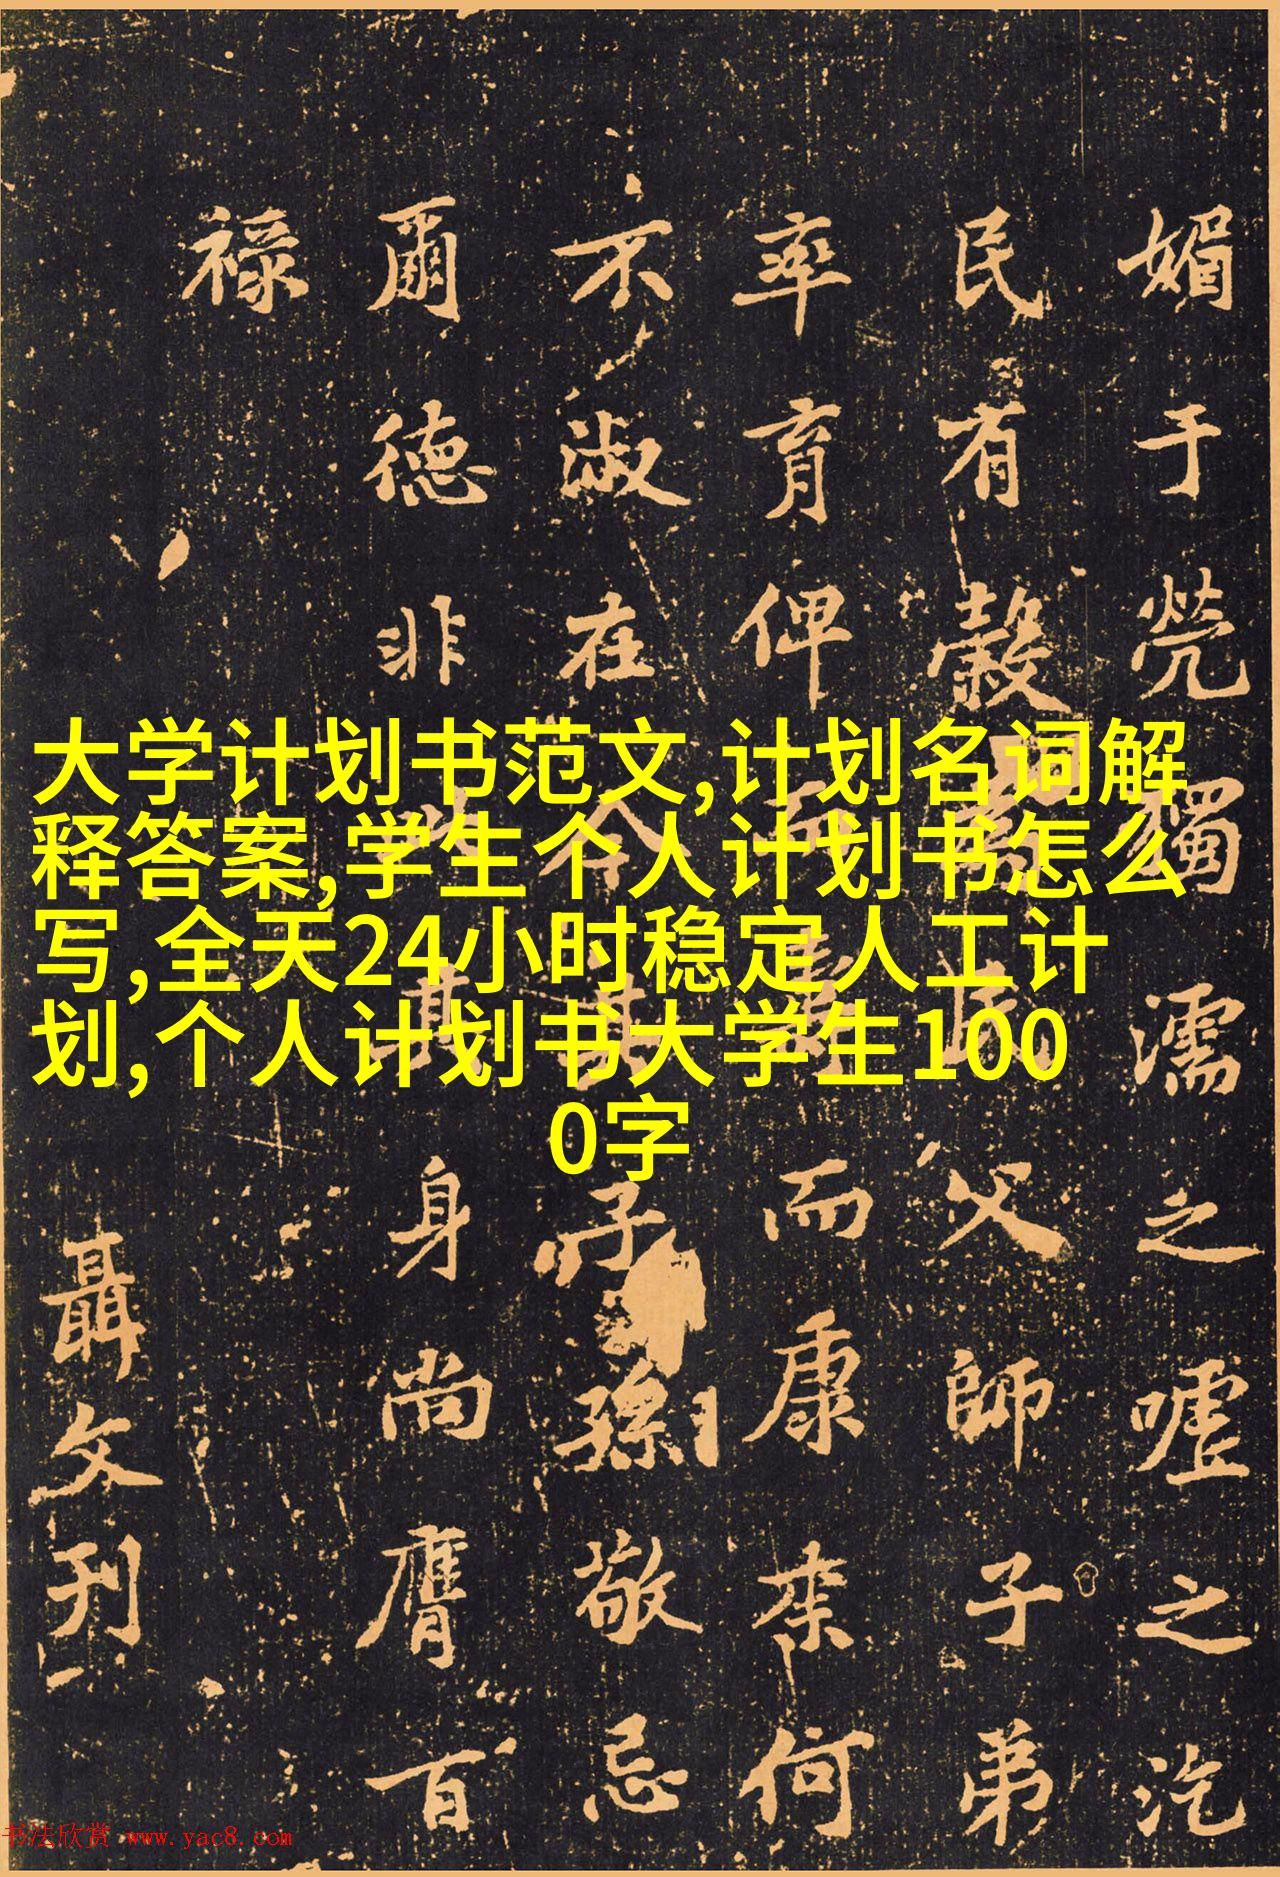 媚于茕獨濡之嘘之汔
民有榖
父師子弟
率育俾
而康来何
不淑在
子孫敬忌
爾德非
身尚膺百
禄
聶文刊
大学计划书范文,计划名词解
释答案,学生个人计划书怎么
写,全天24小时稳定人工计
划,个人计划书大学生100
0字
书法欣赏 www.yac8.com